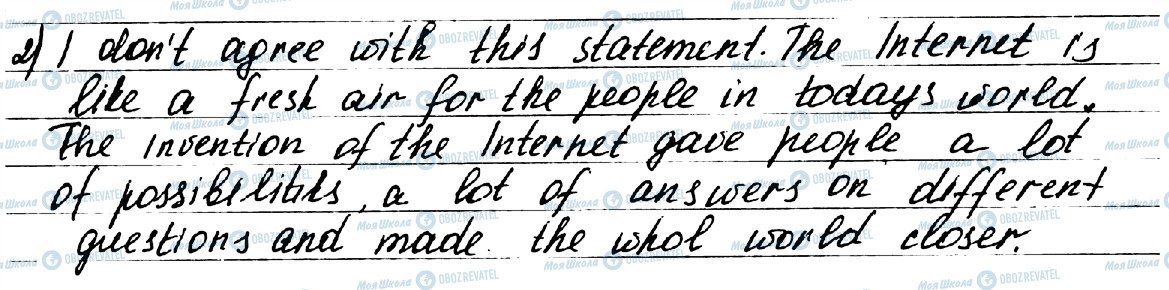 2) I don't agree with this statement. The Internet is
like a fresh air for the people in todays world.
The invention of the Internet gave people a lot
of possibilities, a lot of answers on different
questions and made the whol world closer.